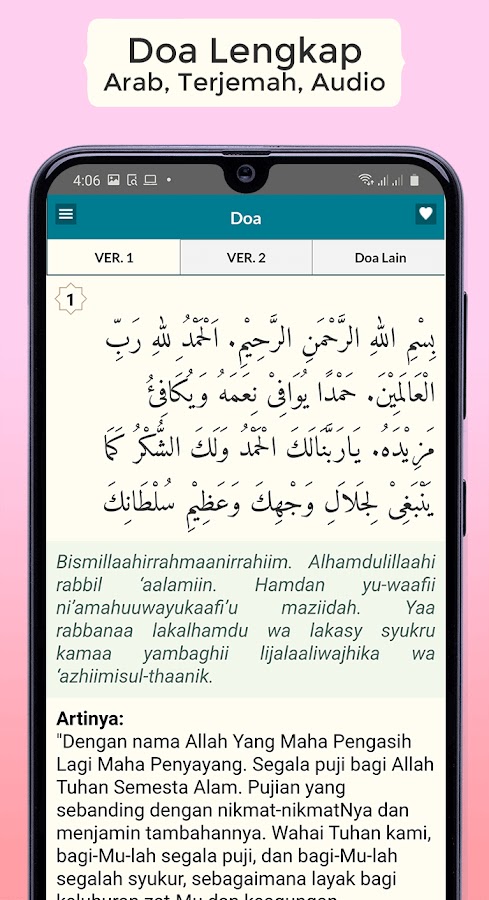 Doa Lengkap
Arab, Terjemah, Audio
4:06
Doa
VER. 1
VER. 2
Doa Lain
1
بِسْمِ اللهِ الرَّحْمَنِ الرَّحِيْمِ. اَلْحَمْدُ لِلهِ رَبِّ
الْعَالَمِيْنَ. حَمْدًا يُوَافِىْ نِعَمَهُ وَيُكَافِئُ
مَزِيْدَهُ. يَارَبَّنَالَكَ الْحَمْدُ وَلَكَ الشُّكْرُ كَمَا
يَنْبَغِىْ لِجَلَالِ وَجْهِكَ وَعَظِيْمِ سُلْطَانِكَ
Bismillaahirrahmaanirrahiim. Alhamdulillaahi
rabbil ‘aalamiin. Hamdan yu-waafii
ni’amahuuwayukaafi’u maziidah. Yaa
rabbanaa lakalhamdu wa lakasy syukru
kamaa yambaghii lijalaaliwajhika wa
‘azhiimisul-thaanik.
Artinya:
"Dengan nama Allah Yang Maha Pengasih
Lagi Maha Penyayang. Segala puji bagi Allah
Tuhan Semesta Alam. Pujian yang
sebanding dengan nikmat-nikmatNya dan
menjamin tambahannya. Wahai Tuhan kami,
bagi-Mu-lah segala puji, dan bagi-Mu-lah
segalah syukur, sebagaimana layak bagi
keluhuran zat-Mu dan keagungan